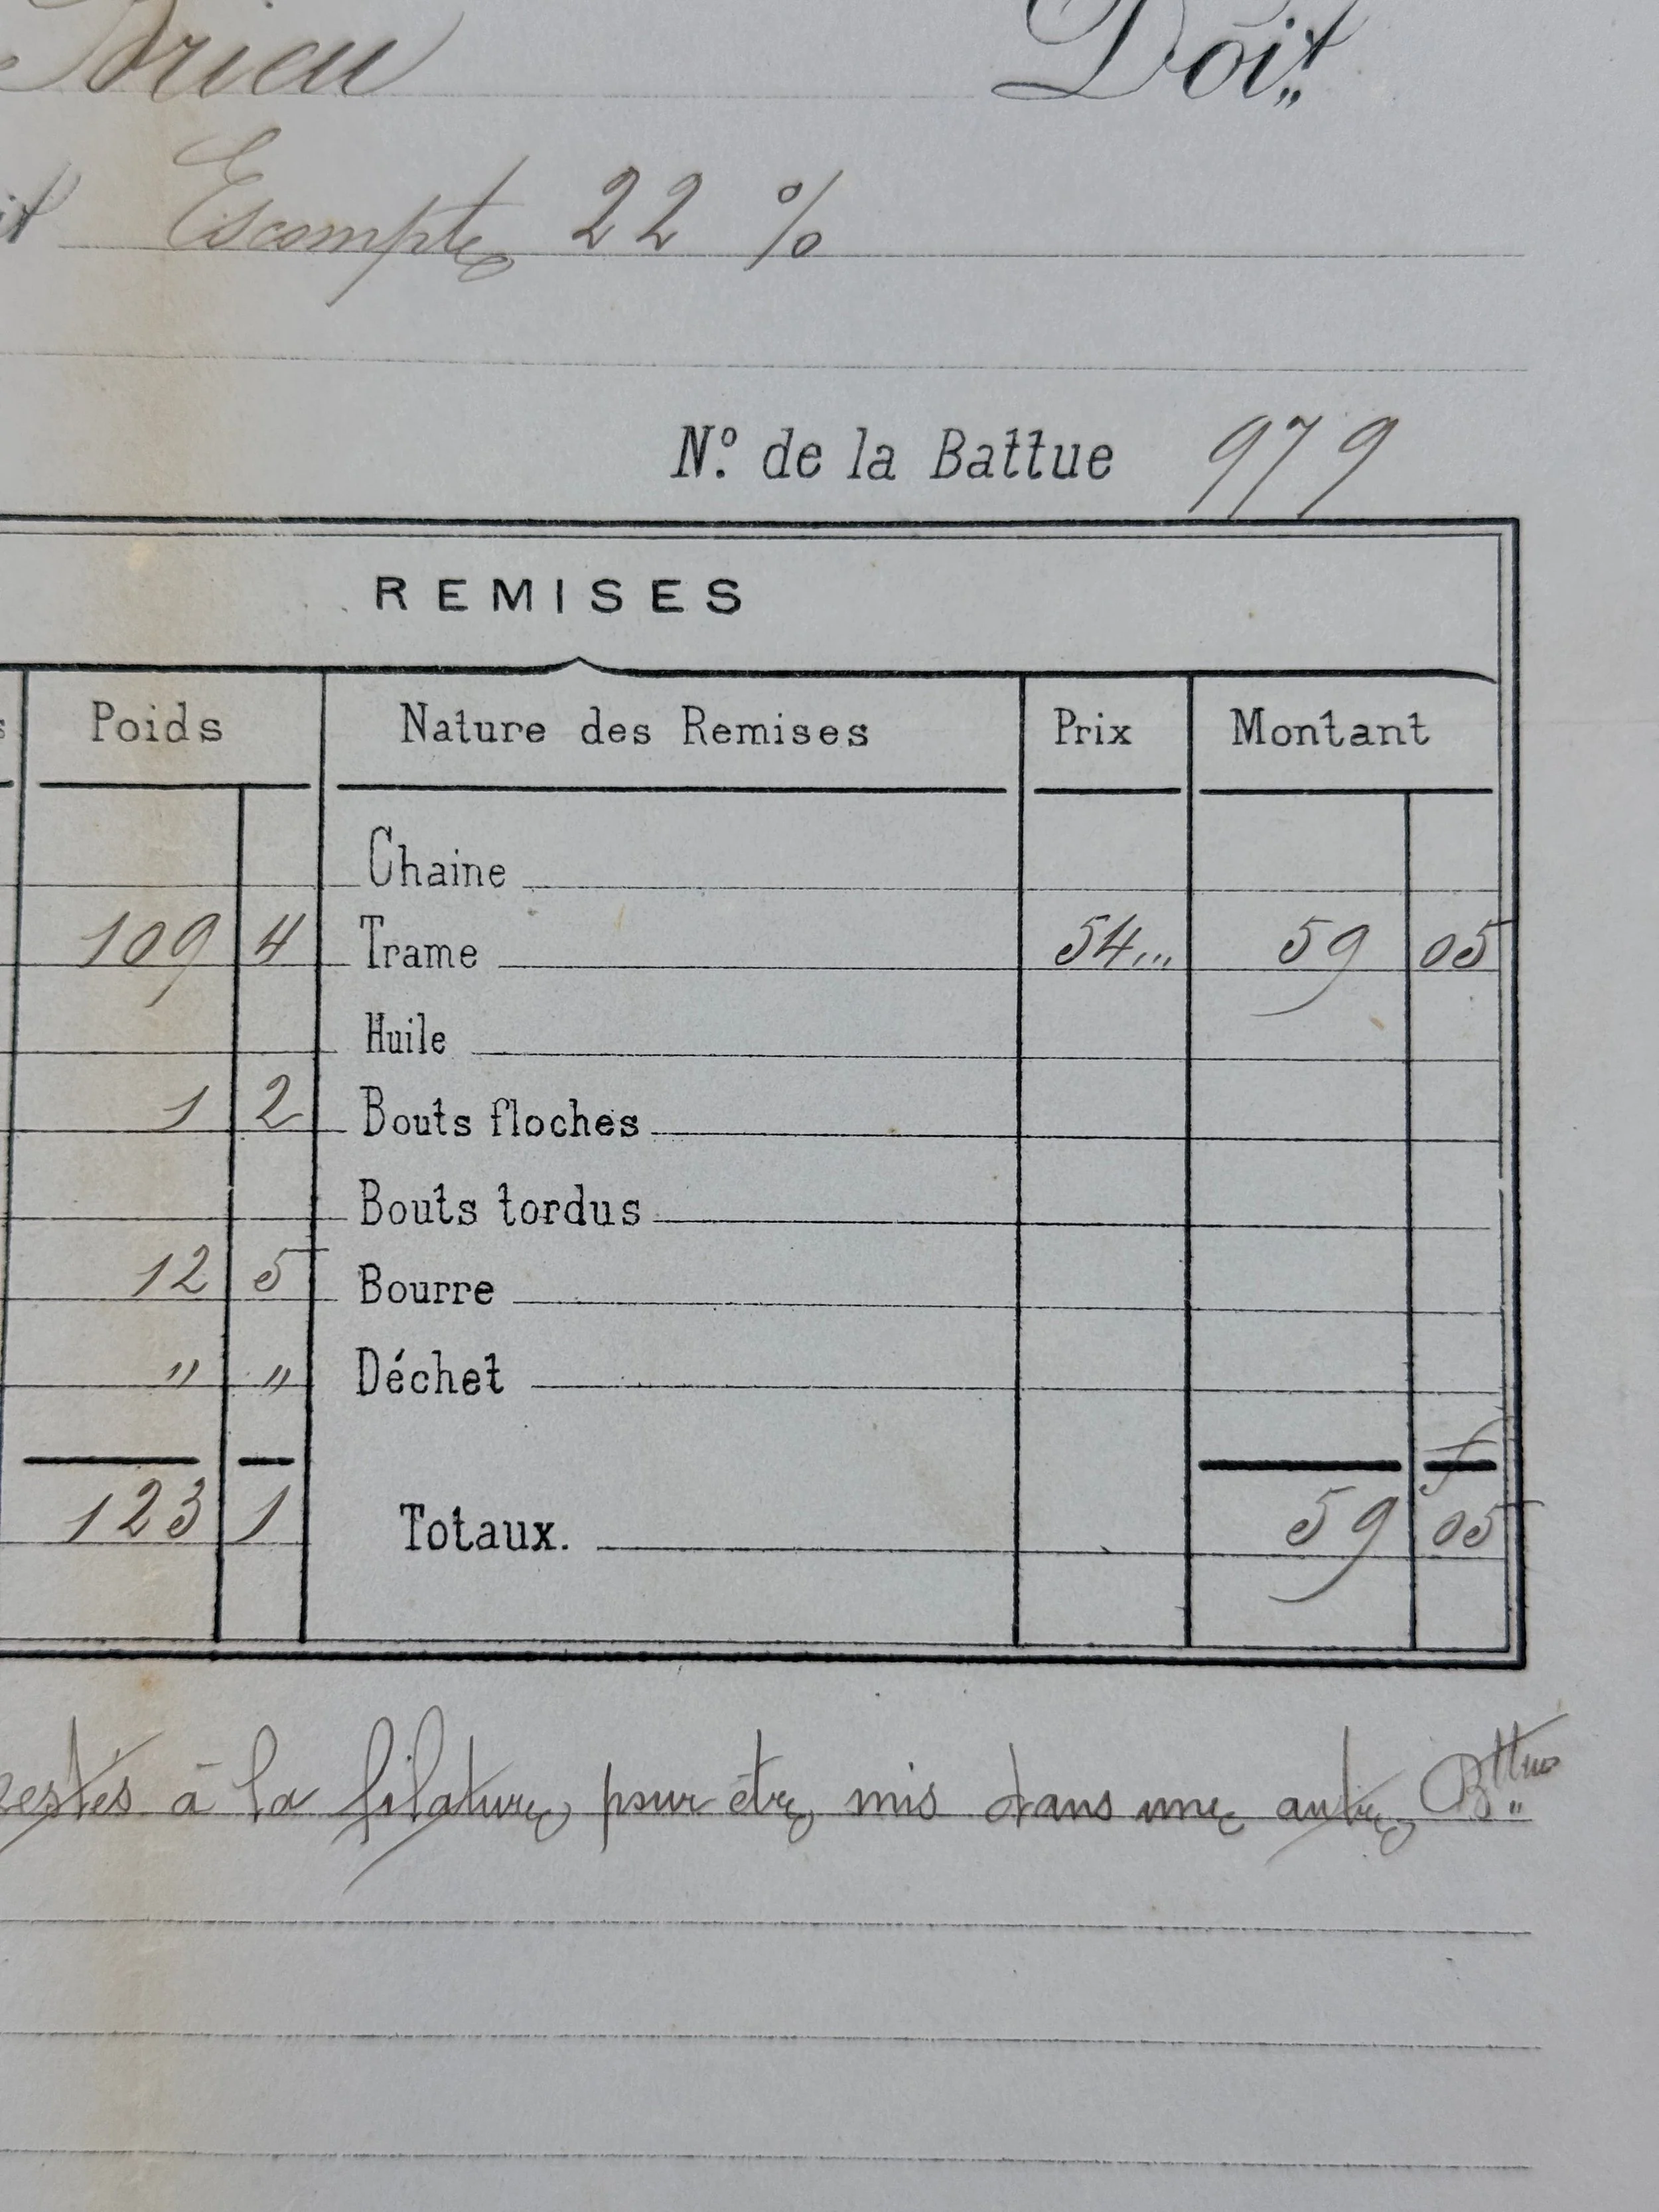 Brieu Doit
Escompte 22 %
N.º de la Battue 979
REMISES
Poids Nature des Remises Prix Montant
Chaine
109 4 Trame 54... 59 05
Huile
1 2 Bouts floches
Bouts tordus
12 5 Bourre
" " Déchet
f
123 1 Totaux. 59 05
restés à la filature, pour être mis dans une autre Bttue